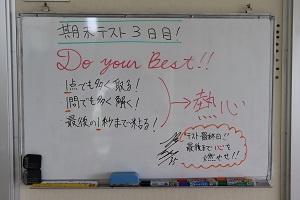 期末テスト3日目!
Do your Best!!
1点でも多く取る!
1問でも多く解く!
最後の1秒まで粘る!
→熱心
テスト最終日!!
最後まで心を
燃やせ!!